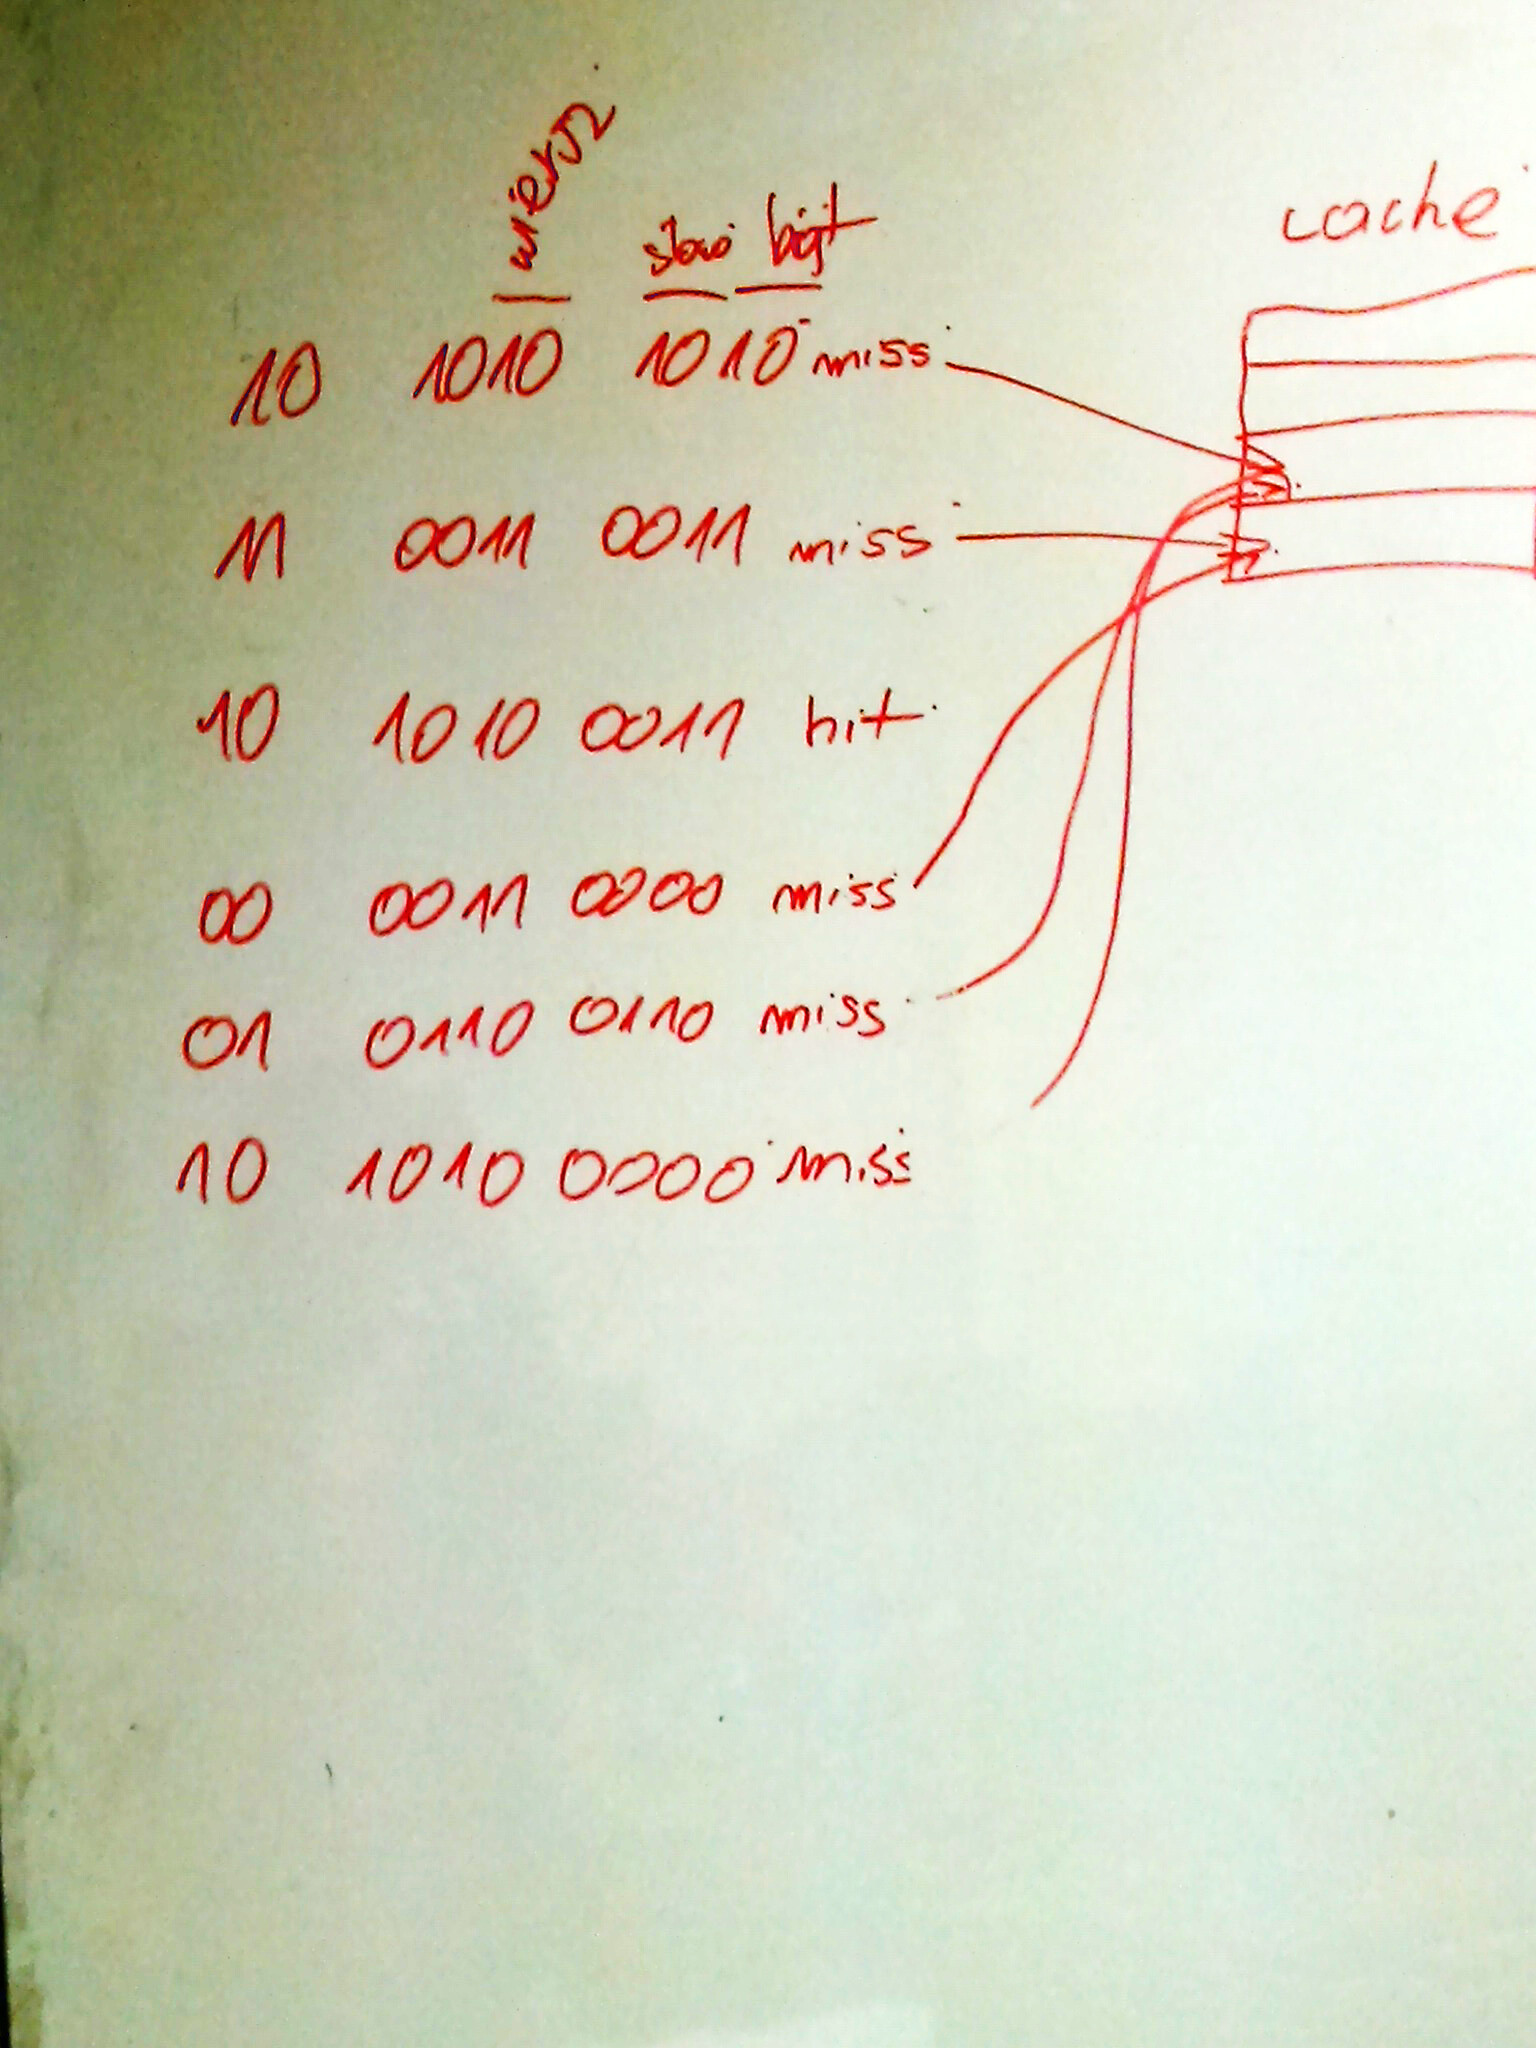 wiersz
słowo bajt
cache
10 1010 1010 miss
11 0011 0011 miss
10 1010 0011 hit
00 0011 0000 miss
01 0110 0110 miss
10 1010 0000 miss